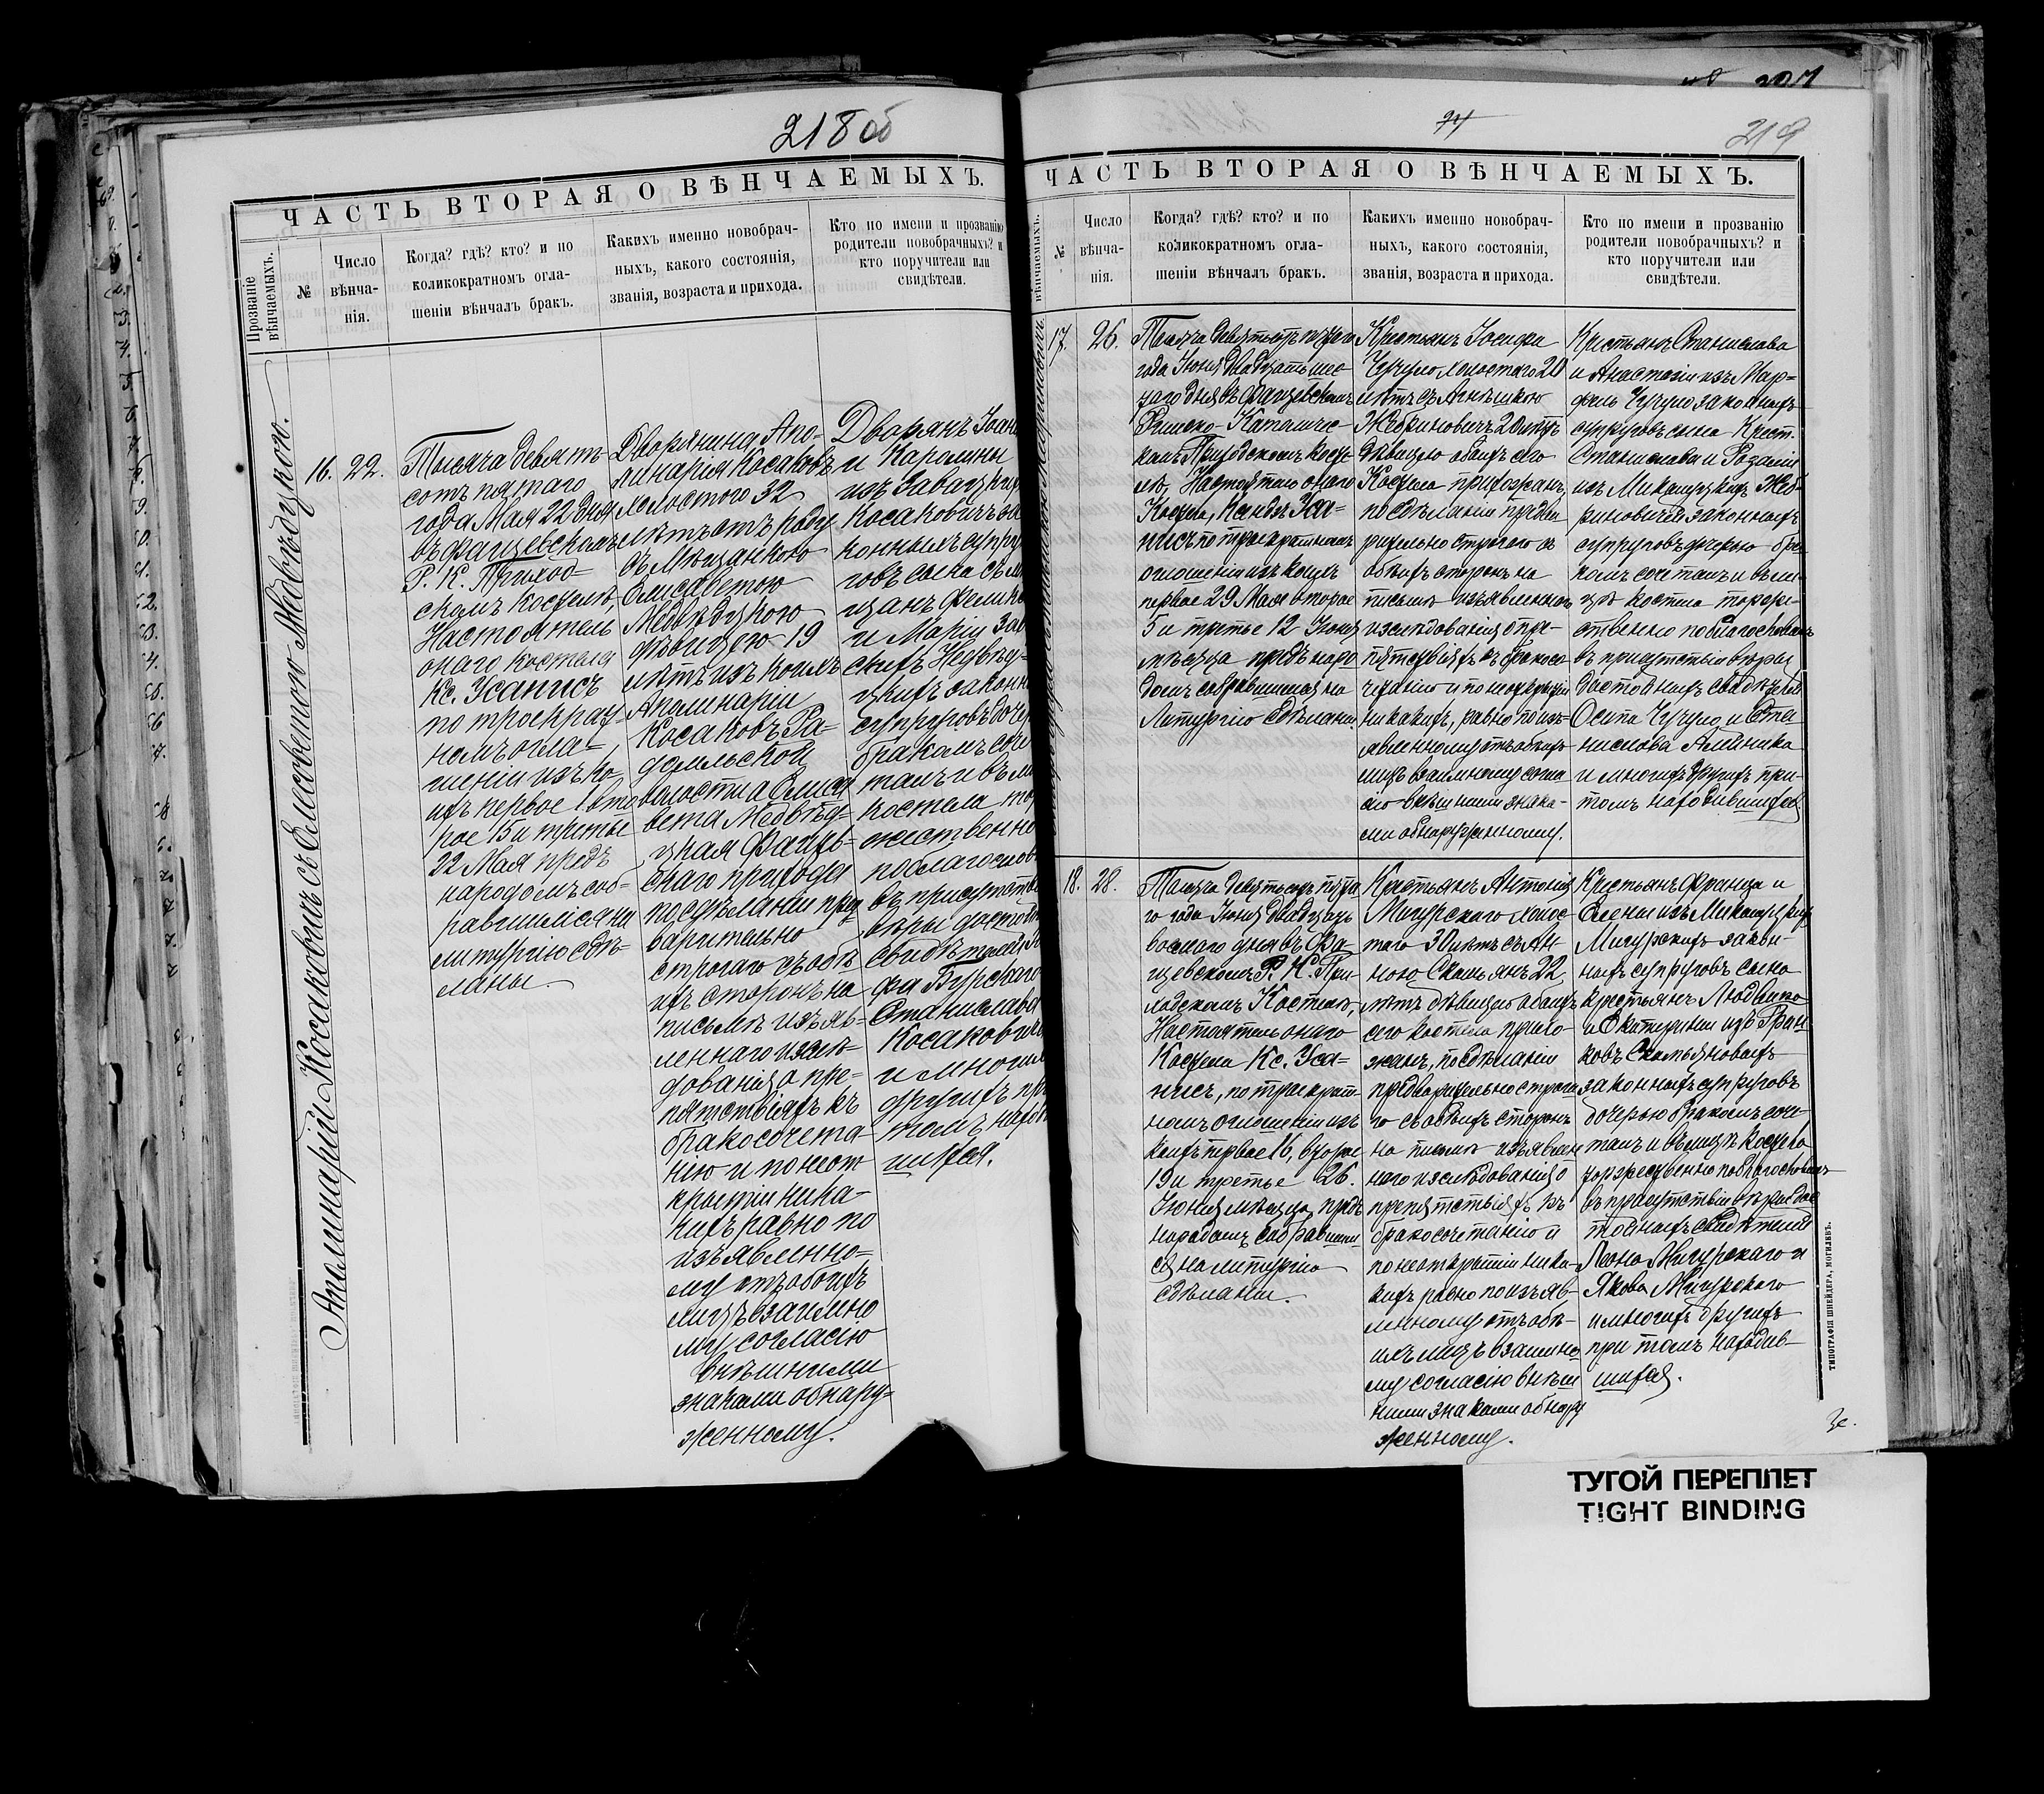 218 об
ЧАСТЬ ВТОРАЯ О ВѢНЧАЕМЫХЪ.
Прозваніе вѣнчаемыхъ.
№
Число вѣнча-
нія.
Когда? гдѣ? кто? и по
коликократномъ огла-
шеніи вѣнчалъ бракъ.
Какихъ именно новобрач-
ныхъ, какого состоянія,
званія, возраста и прихода.
Кто по имени и прозванію
родители новобрачныхъ? и
кто поручители или
свидѣтели.
Аполинарій Косаковичъ съ Елисаветою Медвѣдцкою.
16.
22.
Тысяча девять
сотъ пятаго
года Мая 22 дня
въ Фащевскомъ
Р. К. Приход-
скомъ костелѣ,
Настоятель
онаго костела
Кс. Усанисъ
по троекрат-
номъ огла-
шеніи изъ ко-
ихъ первое 1 вто
рое 15 и третье
22 Мая предъ
народомъ соб-
равшимися на
литургію сдѣ-
ланы.
Дворянина Апо-
линарія Косаковъ
холостого 32
лѣтъ отъ роду
съ Мѣщанкою
Елисаветою
Медвѣдцкою
дѣвицею 19
лѣтъ изъ коихъ
Аполинарій
Косаковъ Ра-
домльской
волости а Елиса
вета Медвѣд-
цкая Фащев-
скаго прихода
по сдѣланіи пред
варительно
строгаго съ обѣ
ихъ сторонъ на
письмѣ изъяв-
леннаго изслѣ-
дованія о пре-
пятствіяхъ къ
бракосочета-
нію и по неот
крытіи ника-
кихъ равно по
изъявленно-
му отъ обоихъ
лицъ взаимно
му согласію
внѣшними
знаками обнару-
женному.
Дворянъ Іоан
и Каролины
изъ Завацких
Косаковичъ за
конныхъ супру
говъ сына съ мѣ
щанъ Феликс
и Маріи
скихъ Недвѣд-
цкихъ законн
супруговъ дочер
бракомъ соче
талъ и въ ли
костела тор
жественно
поблагослови
въ присутстві
вѣры достой
свидѣтелей
фа Бурского
Станислава
Косакович
и многих
другихъ при
томъ наход
шихся.
94
219
ЧАСТЬ ВТОРАЯ О ВѢНЧАЕМЫХЪ.
вѣнчаемыхъ.
№
Число
вѣнча-
нія.
Когда? гдѣ? кто? и по
коликократномъ огла-
шеніи вѣнчалъ бракъ.
Какихъ именно новобрач-
ныхъ, какого состоянія,
званія, возраста и прихода.
Кто по имени и прозванію
родители новобрачныхъ? и
кто поручители или
свидѣтели.
17.
26.
Тысяча девятьсотъ пятаго
года Іюня двадцать шес-
таго дня въ Фащевскомъ
Римско-Католичес-
комъ Приходскомъ косте
лѣ, Настоятель онаго
Костела, Ксендзъ Уса-
нисъ по троекратномъ
оглашеніи изъ коихъ
первое 29 Мая второе
5 и третье 12 Іюня
мѣсяца предъ наро
домъ собравшимся на
Литургію сдѣланы.
Крестьянъ Іосифа
Чучуло холостаго 20
лѣтъ съ Агнѣшкою
Жебриновичъ 20 лѣтъ
дѣвицею обоихъ сего
Костела прихожанъ,
по сдѣланіи предва
рительно строгаго съ
обѣихъ сторонъ на
письмѣ изъявленнаго
изслѣдованія о пре-
пятствіяхъ къ бракосо
четанію и по неоткрытіи
никакихъ, равно по изъ-
явленному отъ обѣихъ
лицъ взаимному согла
сію внѣшними знака-
ми обнаруженному.
Крестьянъ Станислава
и Анастасіи изъ Мар-
фель Чучуло законныхъ
супруговъ сына Крест.
Станислава и Розаліи
изъ Микашуцкихъ Жеб-
риновичей законныхъ
супруговъ дочерью бра-
комъ сочеталъ и въ ли-
цѣ костела торже-
ственно поблагословилъ
въ присутствіи вѣры
достойныхъ свидѣтелей
Осипа Чучуло и Ста
нислава Алейника
и многихъ другихъ при-
томъ находившихся
18.
28.
Тысяча девятьсотъ пята
го года Іюня двадцать
восмаго дня въ Фа-
щевскомъ Р. К. При
ходскомъ Костелѣ,
Настоятель онаго
Костела Кс. Уса-
нисъ, по троекрат-
номъ оглашеніи изъ
коихъ первое 16, второе
19 и третье 26.
Іюня мѣсяца предъ
народомъ собравшим
ся на литургію
сдѣланы.
Крестьянъ Антонія
Мигурского холос-
таго 30 лѣтъ съ Ан
ною Скомьянъ 22
лѣтъ дѣвицею обоихъ
сего костела прихо-
жанъ, по сдѣланіи
предварительно строга
го съ обѣихъ сторонъ
на письмѣ изъявлен
наго изслѣдованія о
препятствіяхъ къ
бракосочетанію и
по неоткрытіи ника-
кихъ равно по изъяв-
ленному отъ обѣ-
ихъ лицъ взаимно
му согласію внѣш
ними знаками обнару
женному.
Крестьянъ Франца и
Елены изъ Микашуцких
Мигурскихъ закон-
ныхъ супруговъ сына
крестьянъ Людвика
и Екатерины изъ Фран-
ковъ Скомьяновыхъ
законныхъ супруговъ
дочерью бракомъ соче-
талъ и въ лицѣ костела
торжественно поблагословилъ
въ присутствіи вѣры дос
тойныхъ свидѣтелей
Леона Мигурскаго и
Якова Мигурского
и многихъ другихъ
при томъ находив-
шихся.
ТИПОГРАФІЯ ШНЕЙДЕРА, МОГИЛЕВЪ.
ТУГОЙ ПЕРЕПЛЕТ
TIGHT BINDING